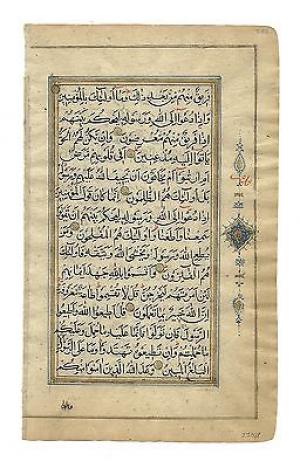 فريق منهم من بعد ذلك وما أولئك بالمؤمنين
وإذا دعوا إلى الله ورسوله ليحكم بينهم
إذا فريق منهم معرضون وإن يكن لهم الحق
يأتوا إليه مذعنين أفي قلوبهم مرض
أم ارتابوا أم يخافون أن يحيف الله عليهم ورسوله
بل أولئك هم الظالمون إنما كان قول المؤمنين
إذا دعوا إلى الله ورسوله ليحكم بينهم أن يقولوا
سمعنا وأطعنا وأولئك هم المفلحون ومن
يطع الله ورسوله ويخش الله ويتقه فأولئك
هم الفائزون وأقسموا بالله جهد أيمانهم
لئن أمرتهم ليخرجن قل لا تقسموا طاعة معروفة
إن الله خبير بما تعملون قل أطيعوا الله وأطيعوا
الرسول فإن تولوا فإنما عليه ما حمل وعليكم
ما حملتم وإن تطيعوه تهتدوا وما على الرسول إلا
البلاغ المبين وعد الله الذين آمنوا منكم